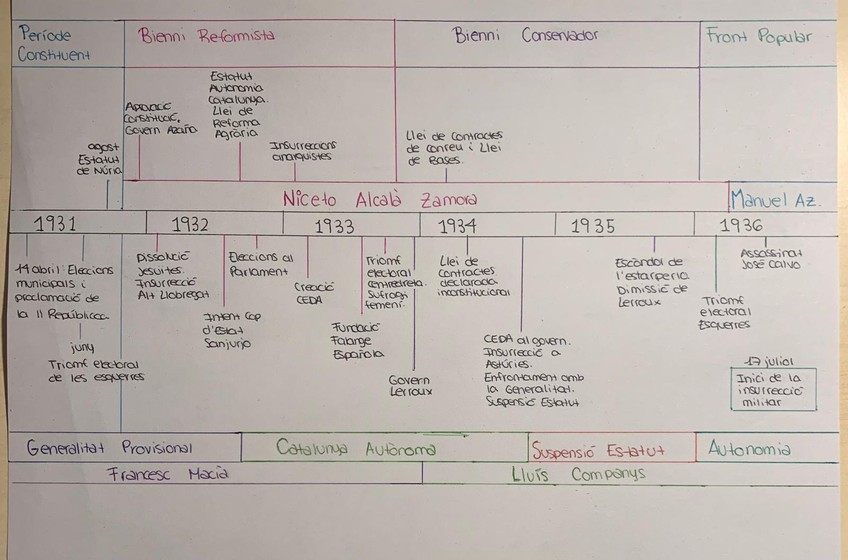 Període
Constituent
Bienni Reformista
Bienni Conservador
Front Popular
agost
Estatut
de Núria
Aprovació
Constitució.
Govern Azaña
Estatut
Autonomia
Catalunya.
Llei de
Reforma
Agrària
Insurreccions
anarquistes
Llei de Contractes
de Conreu i Llei
de Bases.
Niceto Alcalà Zamora
Manuel Az.
1931
1932
1933
1934
1935
1936
14 abril: Eleccions
municipals i
proclamació de
la II República
juny
Triomf electoral
de les esquerres
Dissolució
Jesuïtes.
Insurrecció
Alt Llobregat
Intent Cop
d'Estat
Sanjurjo
Eleccions al
Parlament
Creació
CEDA
Fundació
Falange
Española
Triomf
electoral
centredreta.
Sufragi
femení.
Govern
Lerroux
Llei de
Contractes
declarada
inconstitucional
CEDA al govern.
Insurrecció a
Astúries.
Enfrontament amb
la Generalitat.
Suspensió Estatut
Escàndol de
l'estarperlo.
Dimissió de
Lerroux
Triomf
electoral
Esquerres
Assassinat
José Calvo
17 juliol
Inici de la
insurrecció
militar
Generalitat Provisional
Catalunya Autònoma
Suspensió Estatut
Autonomia
Francesc Macià
Lluís Companys